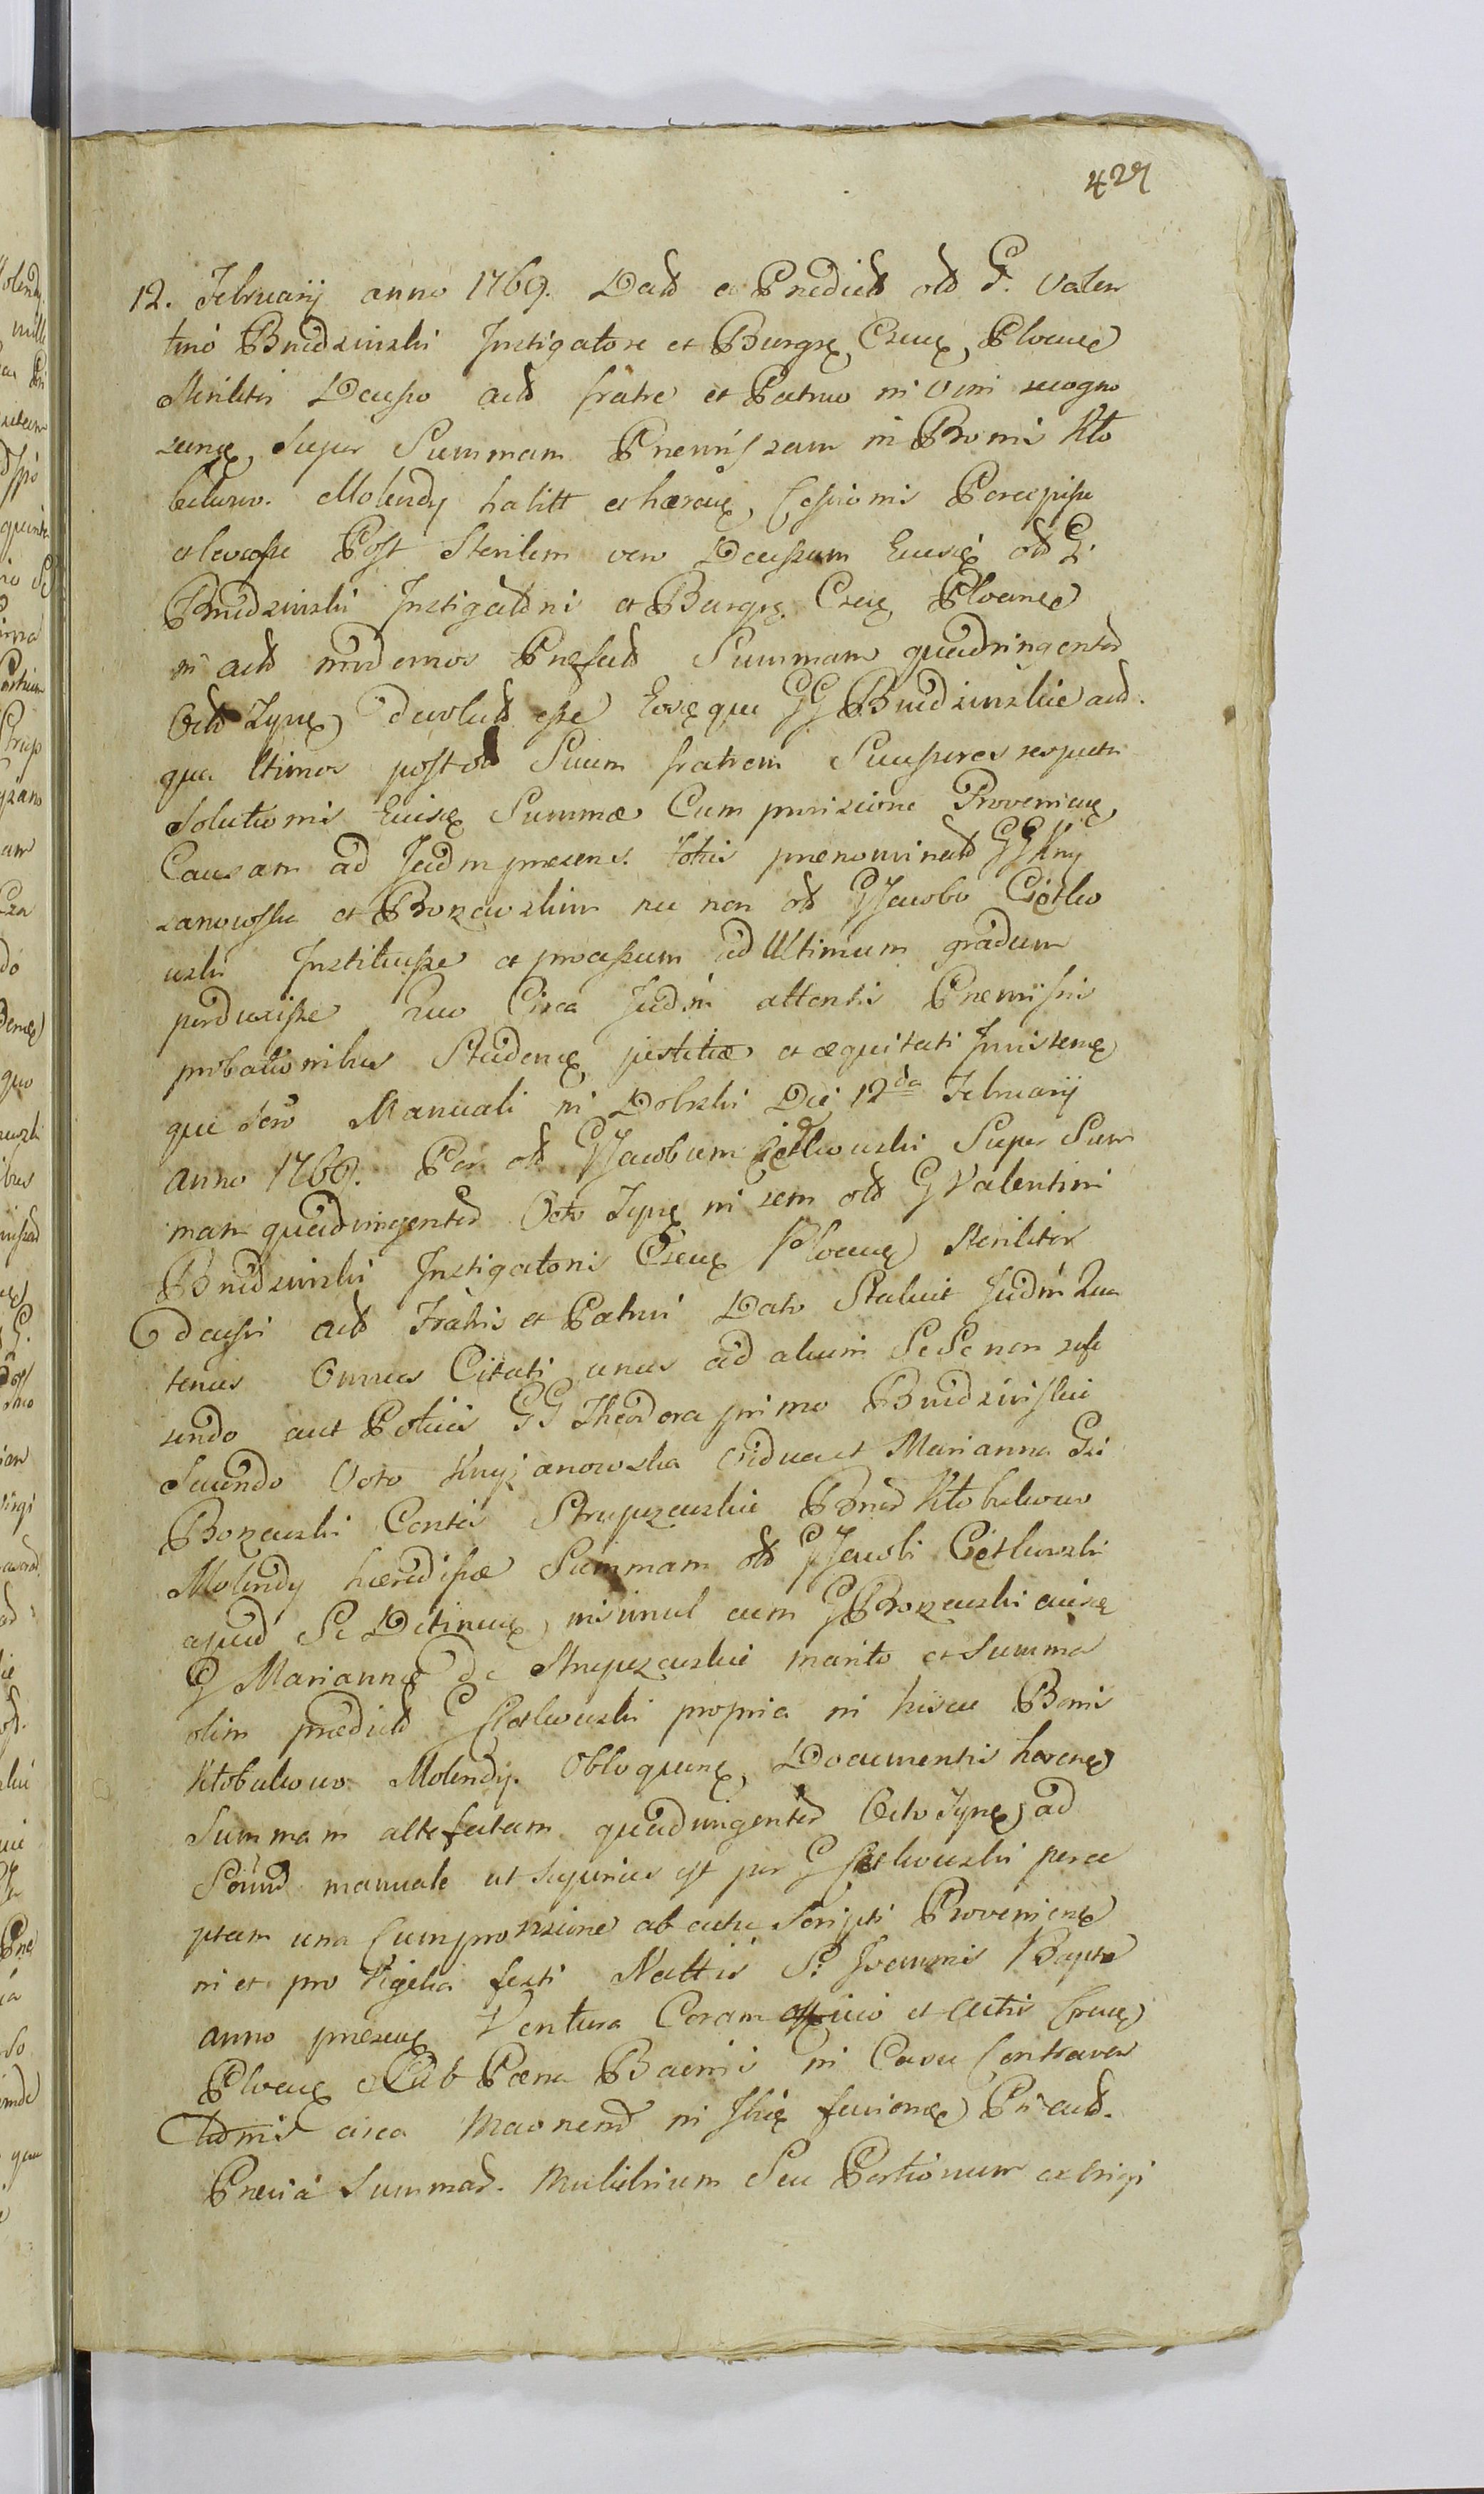 427
12. Februarij anno 1769. Datd a Predictd old G. Valen
tino Brudzinski Instigatore et Burgrę Cseuę, Plocenę
steriliter Decesso actd fratre et Patruo in Vim recogno
scenę, super Summam Premissam in Bonis Kło
bukowo. Molendy habitt et haerenę, Cessionis Percepisse
et levasse Post Sterilem vero Decessum Eiusdę old G.
Brudzinski Instigatoris et Burgrę Cseuę Plocensę
in actd modernos Prefatd Summam quadringentd
Octo Zypnę, devolutd esse Eosdęque GG Brudzinskie actd.
qua ltimos post old Suum fratrem Sucessores respectu
Solutionis Eiusdę Summae Cum provisione Provenienę,
Causam ad Judm praesens. Totis praenominatd GG Kny
zanowska et Borzewskim nec non old G Jacobo Cietko
wski Instituisse et processum ad Ultimum gradum
perduxisse Quo Circa Judm attentis Premissis
probationibus Studenę, justitiae et aequitati Insistenę
que Scro Manuali in Dobrski Die 12da Februarij
anno 1769. Per old G Jacobum Cietkowski Super Sum
mam quadringentd Octo Zypnę in rem old G Valentini
Brudzinski Instigatoris Cseuę Plocenę steriliter
decessi actd Fratris et Patrui Dato Statuit Judm Qua
tenus Omnes Citati unus ad alium Se Se non refe
rendo aut Potius GG Theodora primo Brudzinskie
Secundo Voto Knyzanowska Vidua et Marianna Gsi
Borzewski Contis Strupczewskie Bnrd Kłobukowo
Molendy haeredissae Summam old G Jacobi Cietkowski
apud Se Detinenę, insimul cum G Borzewski eiusdę
G Mariannę de Strupczewskie marito et Summa
olim praedictd G Cietkowski propria in hisce Bonis
Kłobukowo Molendy. Obloquenę, Documentis haerenę
Summam altefatam quadringentd Octo Zypnę, ad
Scrimd manuale ut superius est per G Cietkowski perce
ptam una Cum provisione ab actu Scripti Provenienę
in et pro Vigilia festi Nattis S. Joannis Bapta
anno praesenę Ventura Coram officio et Actis Cseuę
Plocenę Sub Poena Bannis in Casu Contraven
tionis circa Maonend in Jhię facienę Pnsactd.
Previa Summad. Mulebrium Seu Portionum ex brigi